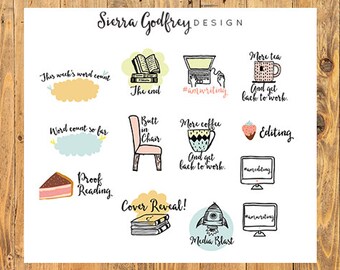 Sierra Godfrey DESIGN
This week's word count
The end
#amwriting
More tea
And get
back to work.
Word count so far
Butt
in
Chair
More coffee
And get
back to work.
Editing
Proof
Reading
Cover Reveal!
Media Blast
#amediting
#amwriting